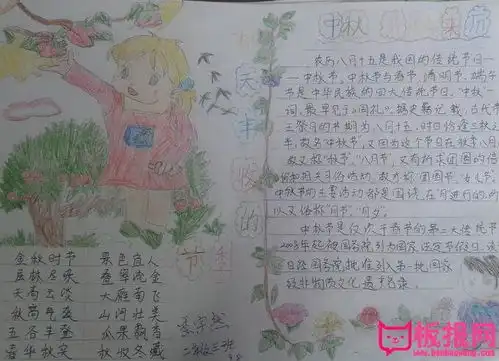 中秋
来历
农历八月十五是我国的传统节日—
—中秋节。中秋节与春节、清明节、端午
节是中华民族的四大传统节日。“中秋”一
词，最早见于《周礼》。据史籍记载，古代帝
王祭月的节期为八月十五，时日恰逢三秋之
半，故名“中秋节”，又因为这个节日在秋季八月，
故又称“秋节”、“八月节”，又有祈求团圆的信
仰和相关习俗活动，故亦称“团圆节”、“女儿节”。
中秋节的主要活动都是围绕“月”进行的，所
以又俗称“月节”“月夕”。
中秋节是仅次于春节的第二大传统节
2008年起被国务院列为国家法定节假日。
日经国务院批准列入第一批国家
级非物质文化遗产名录。
秋天丰收的
节日
金秋时节 景色宜人
层林尽染 叠翠流金
天高云淡 大雁南飞
秋高气爽 山河壮美
五谷丰登 瓜果飘香
春华秋实 秋收冬藏
板报网
www.banbaowang.com